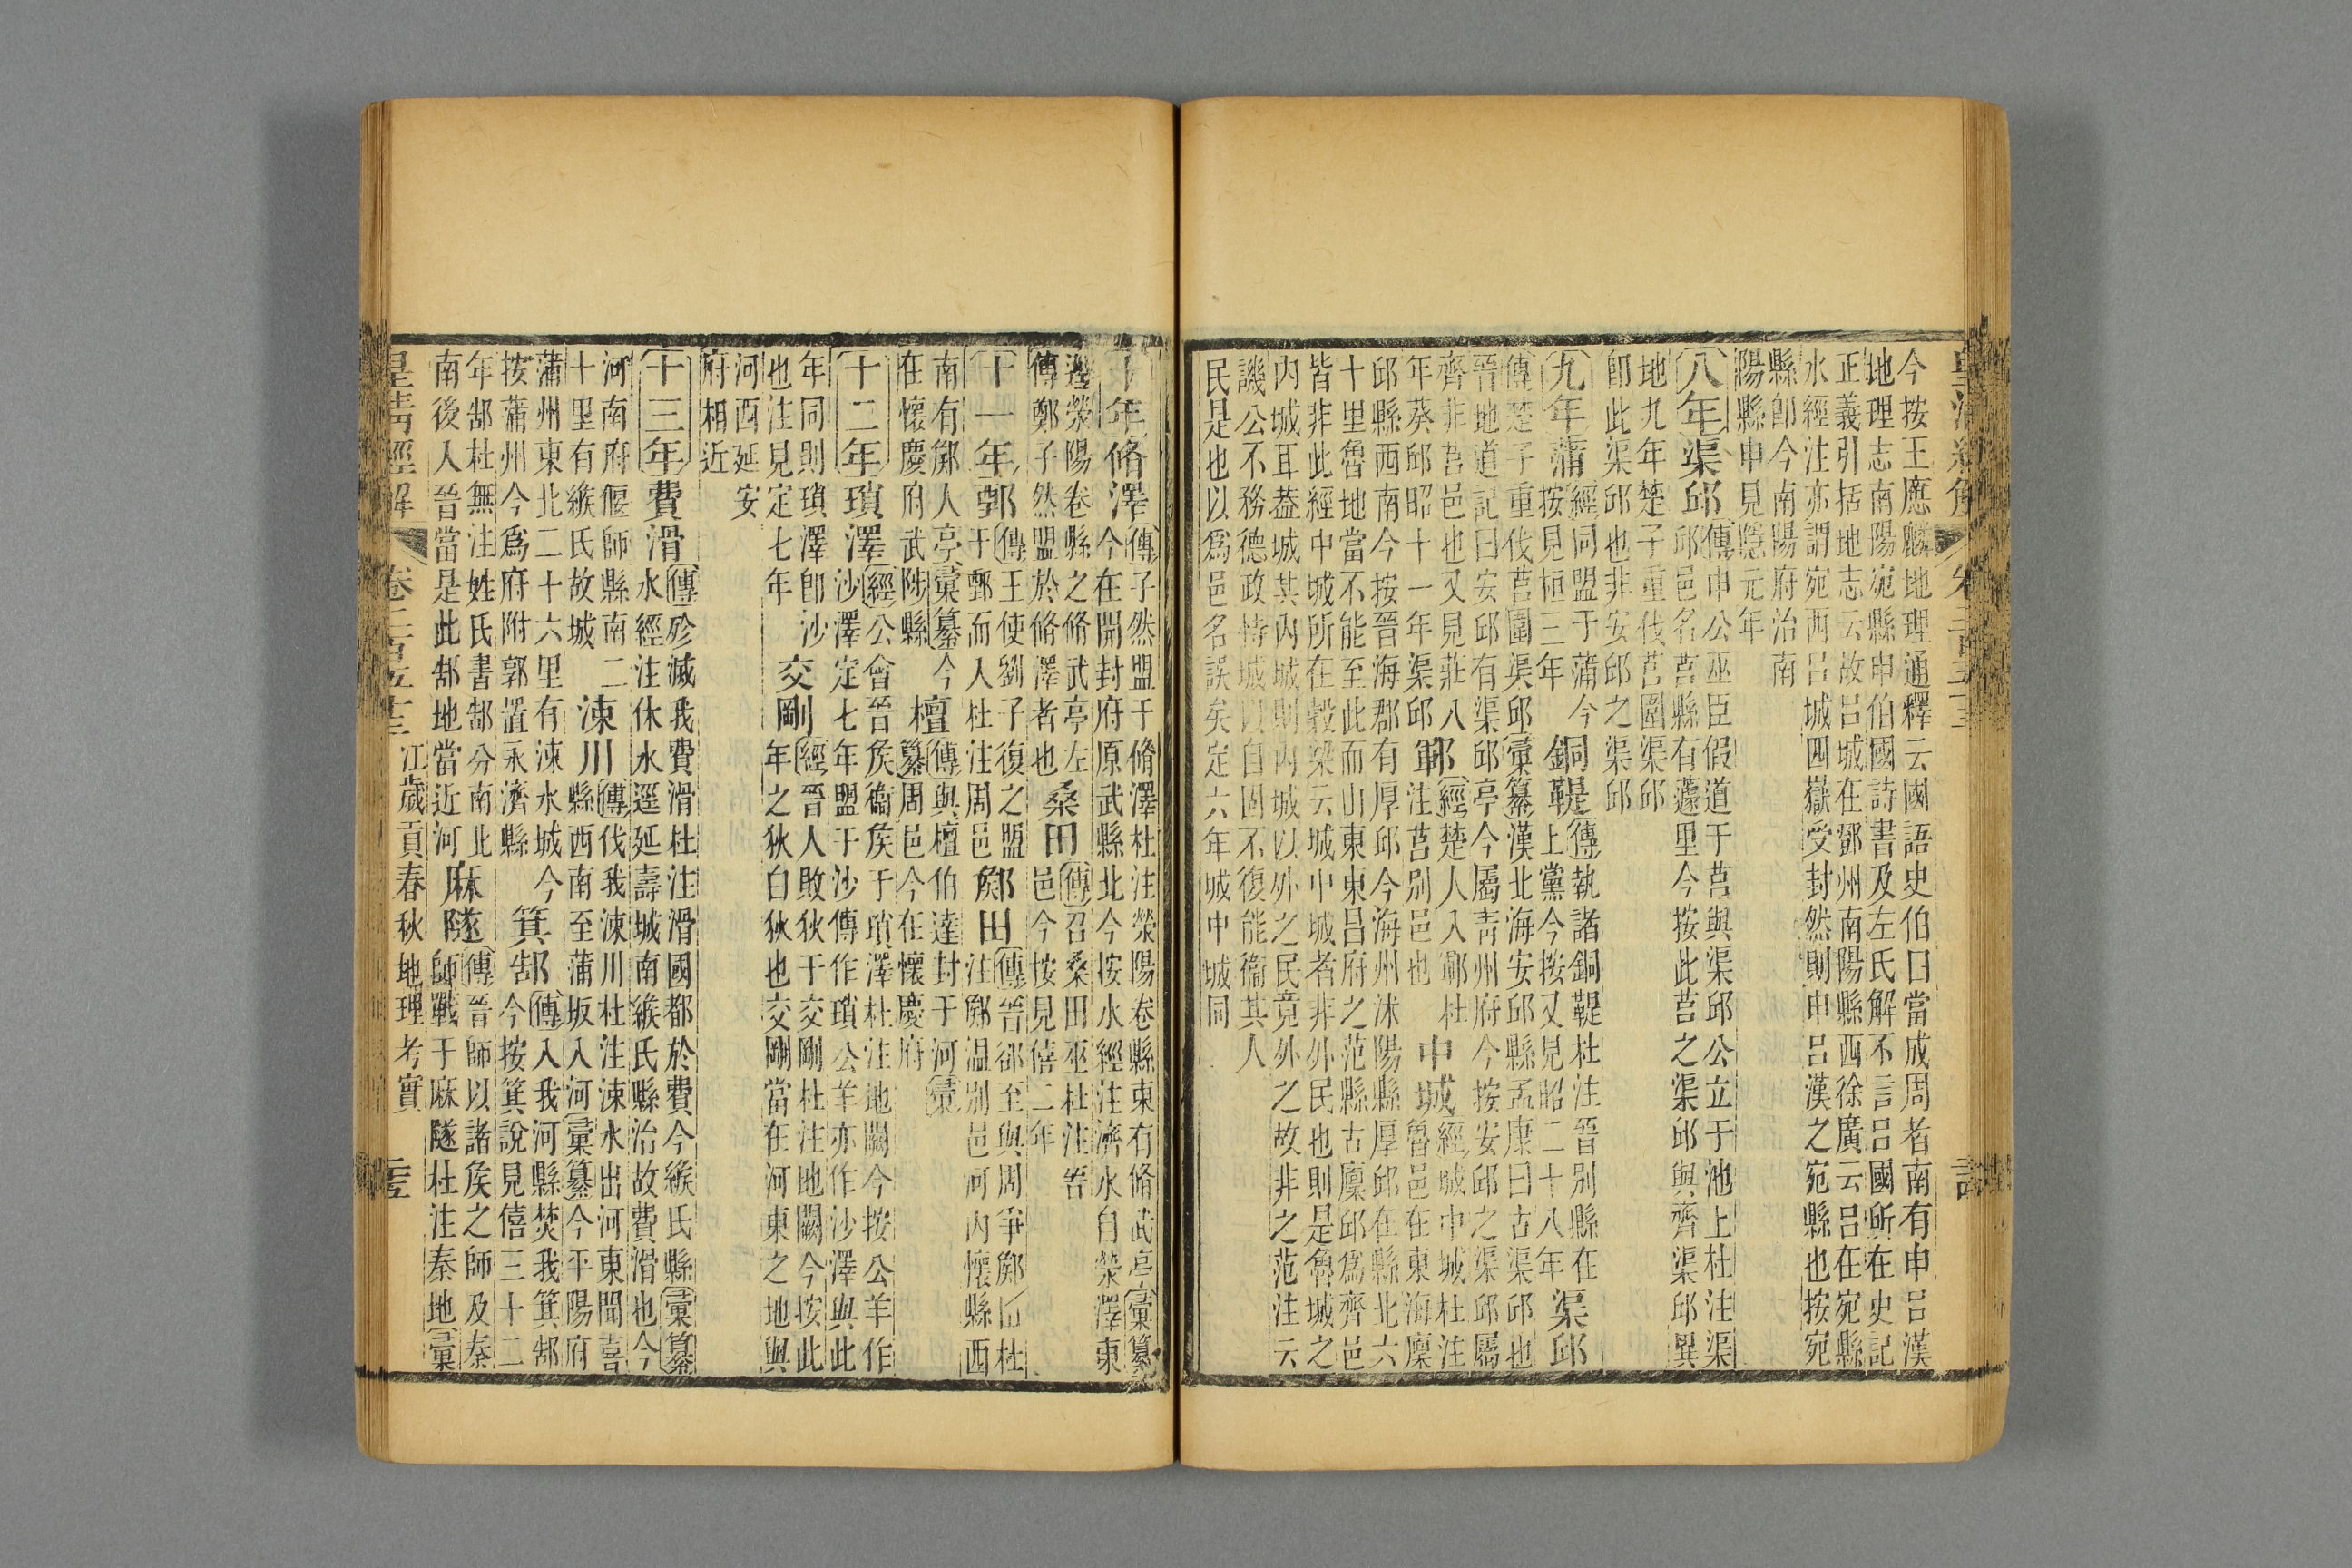 今按王應麟地理通釋云國語史伯曰當成周者南有申呂漢
地理志南陽宛縣申伯國詩書及左氏解不言呂國所在史記
正義引括地志云故呂城在鄧州南陽縣西徐廣云呂在宛縣
水經注亦謂宛西呂城四嶽受封然則申呂漢之宛縣也按宛
縣卽今南陽府治南
陽縣申見隱元年
八年渠邱
傳申公巫臣假道于莒與渠邱公立于池上杜注渠
邱邑名莒縣有蘧里今按此莒之渠邱與齊渠邱異
地九年楚子重伐莒圍渠邱
卽此渠邱也非安邱之渠邱
九年蒲
經同盟于蒲今
按見桓三年
銅鞮
傳執諸銅鞮杜注晉別縣在
上黨今按又見昭二十八年
渠邱
傳楚子重伐莒圍渠邱彙纂漢北海安邱縣孟康曰古渠邱也
晉地道記曰安邱有渠邱亭今屬青州府今按安邱之渠邱屬
齊非莒邑也又見莊八
年葵邱昭十一年渠邱
鄆
經楚人入鄆杜
注莒別邑也
中城
經城中城杜注
魯邑在東海廩
邱縣西南今按晉海郡有厚邱今海州沭陽縣厚邱在縣北六
十里魯地當不能至此而山東東昌府之范縣古廩邱爲齊邑
皆非此經中城所在穀梁云城中城者非外民也則是魯城之
內城耳葢城其內城則內城以外之民竟外之故非之范注云
譏公不務德政恃城以自固不復能衞其人
民是也以爲邑名誤矣定六年城中城同
十年脩澤
傳子然盟于脩澤杜注滎陽卷縣東有脩武亭彙纂
今在開封府原武縣北今按水經注濟水自滎澤東
逕滎陽卷縣之脩武亭左
傳鄭子然盟於脩澤者也
桑田
傳召桑田巫杜注晉
邑今按見僖二年
十一年鄄
傳王使劉子復之盟
于鄄而入杜注周邑
鄇田
傳晉郤至與周爭鄇田杜
注鄇溫別邑河內懷縣西
南有鄇人亭彙纂今
在懷慶府武陟縣
檀
傳與檀伯達封于河彙
纂周邑今在懷慶府
十二年瑣澤
經公會晉矦衞矦于瑣澤杜注地闕今按公羊作
沙澤定七年盟于沙傳作瑣公羊亦作沙澤與此
年同則瑣澤卽沙
也注見定七年
交剛
經晉人敗狄于交剛杜注地闕今按此
年之狄白狄也交剛當在河東之地與
河西延安
府相近
十三年費滑
傳殄滅我費滑杜注滑國都於費今緱氏縣彙纂
水經注休水逕延壽城南緱氏縣治故費滑也今
河南府偃師縣南二
十里有緱氏故城
涑川
傳伐我涑川杜注涑水出河東聞喜
縣西南至蒲坂入河彙纂今平陽府
蒲州東北二十六里有涑水城今
按蒲州今爲府附郭置永濟縣
箕郜
傳入我河縣焚我箕郜
今按箕說見僖三十二
年郜杜無注姓氏書郜分南北
南後人晉當是此郜地當近河
麻隧
傳晉師以諸矦之師及秦
師戰于麻隧杜注秦地彙
皇清經解
江歲貢春秋地理考實